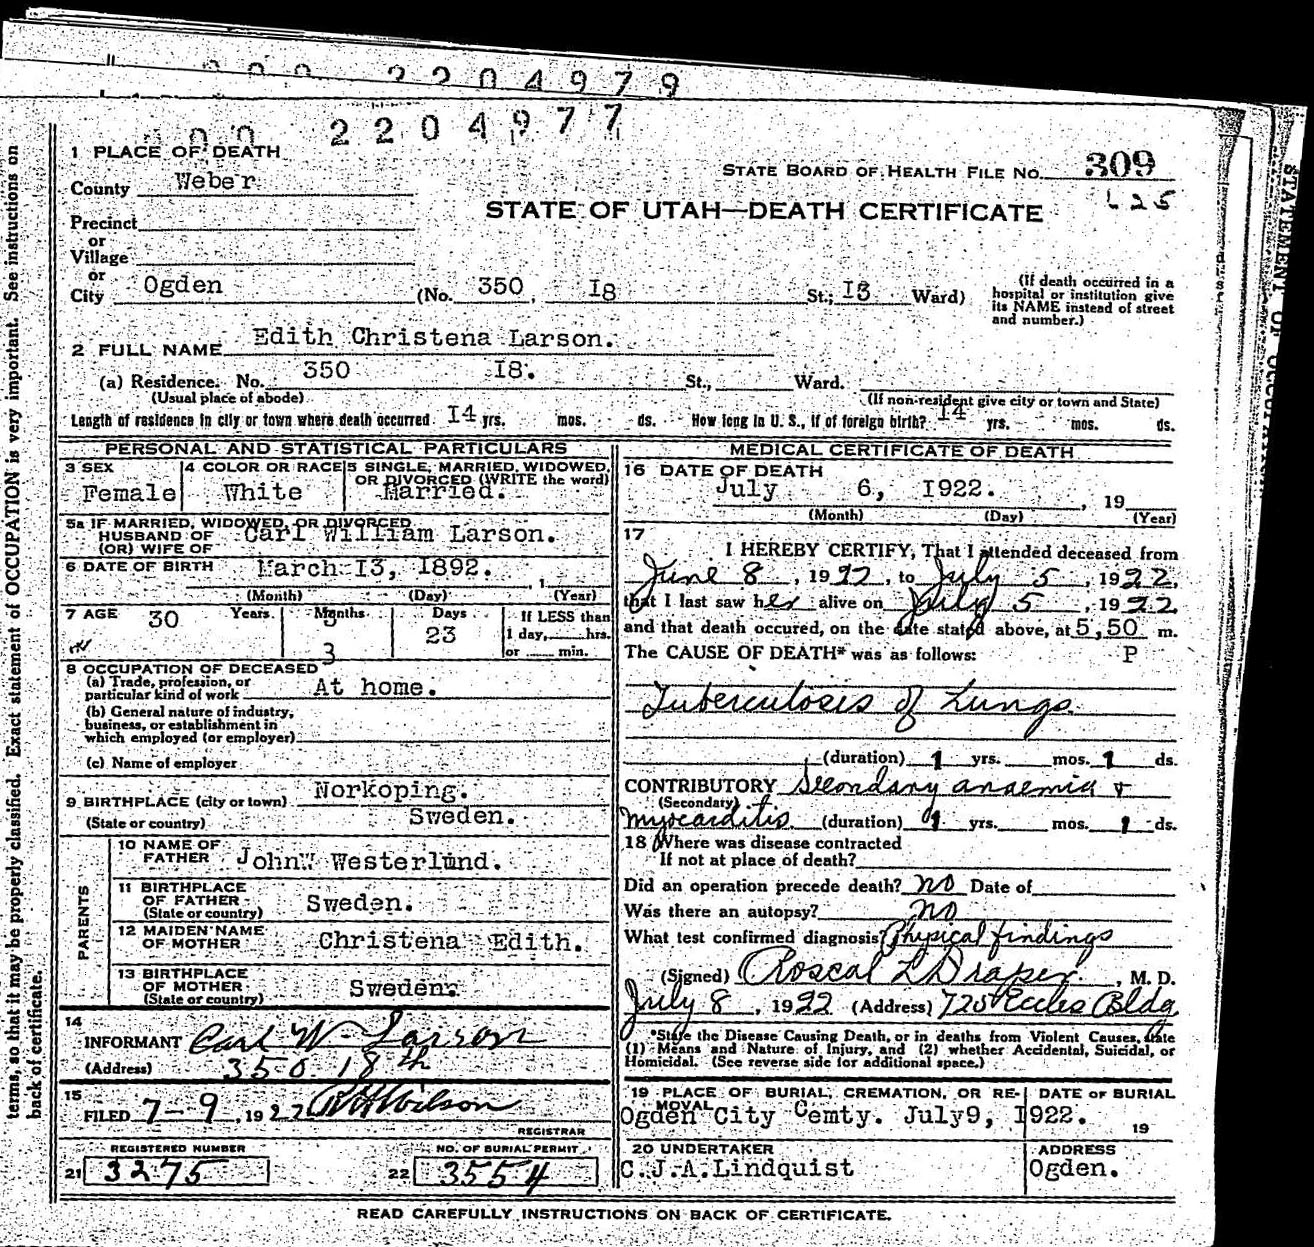 2204979
2204977
1 PLACE OF DEATH
County Weber
STATE BOARD OF HEALTH FILE NO. 309
L25
STATE OF UTAH—DEATH CERTIFICATE
Precinct
or
Village
or
City Ogden (No. 350, I8 St.; I3 Ward)
(If death occurred in a hospital or institution give its NAME instead of street and number.)
2 FULL NAME Edith Christena Larson.
(a) Residence. No. 350 I8. St., Ward.
(Usual place of abode) (If non-resident give city or town and State)
Length of residence in city or town where death occurred I4 yrs. mos. ds. How long in U. S., if of foreign birth? I4 yrs. mos. ds.
PERSONAL AND STATISTICAL PARTICULARS
3 SEX
Female
4 COLOR OR RACE
White
5 SINGLE, MARRIED, WIDOWED,
OR DIVORCED (WRITE the word)
Married.
5a IF MARRIED, WIDOWED, OR DIVORCED
HUSBAND OF
(OR) WIFE OF Carl William Larson.
6 DATE OF BIRTH March I3, I892.
(Month) (Day) (Year)
7 AGE 30 Years. Months 3 Days 23
If LESS than
1 day, hrs.
or min.
8 OCCUPATION OF DECEASED
(a) Trade, profession, or
particular kind of work At home.
(b) General nature of industry,
business, or establishment in
which employed (or employer)
(c) Name of employer
9 BIRTHPLACE (city or town) Norkoping.
(State or country) Sweden.
PARENTS
10 NAME OF
FATHER John Westerlund.
11 BIRTHPLACE
OF FATHER
(State or country) Sweden.
12 MAIDEN NAME
OF MOTHER Christena Edith.
13 BIRTHPLACE
OF MOTHER
(State or country) Sweden.
14
INFORMANT Carl W Larson
(Address) 350 18th
15
FILED 7-9, 1922 Wilson
REGISTRAR
REGISTERED NUMBER
21 3275
NO. OF BURIAL PERMIT
22 3554
MEDICAL CERTIFICATE OF DEATH
16 DATE OF DEATH
July 6, I922. , 19
(Month) (Day) (Year)
17
I HEREBY CERTIFY, That I attended deceased from
June 8, 1922, to July 5, 1922,
that I last saw her alive on July 5, 1922
and that death occured, on the date stated above, at 5,50 m.
The CAUSE OF DEATH* was as follows: P
Tuberculosis of Lungs.
(duration) 1 yrs. mos. 1 ds.
CONTRIBUTORY Secondary anaemia +
(Secondary)
myocarditis. (duration) 1 yrs. mos. 1 ds.
18 Where was disease contracted
If not at place of death?
Did an operation precede death? no Date of
Was there an autopsy? no
What test confirmed diagnosis? Physical findings
(Signed) Roscal L Draper, M. D.
July 8, 1922 (Address) 725 Eccles Bldg
*State the Disease Causing Death, or in deaths from Violent Causes, state
(1) Means and Nature of Injury, and (2) whether Accidental, Suicidal, or
Homicidal. (See reverse side for additional space.)
19 PLACE OF BURIAL, CREMATION, OR RE-
MOVAL
Ogden City Cemty.
DATE OF BURIAL
July9, I922. 19
20 UNDERTAKER
C.J.A.Lindquist
ADDRESS
Ogden.
READ CAREFULLY INSTRUCTIONS ON BACK OF CERTIFICATE.
terms, so that it may be properly classified. Exact statement of OCCUPATION is very important. See instructions on
back of certificate.